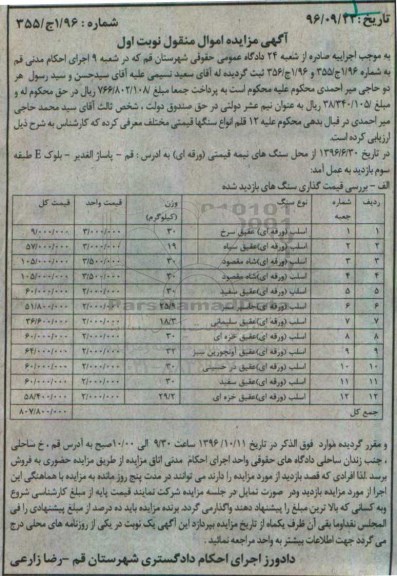 تاریخ: ۹۶/۰۹/۲۲ شماره : ۱/۹۶ج/۳۵۵
آگهی مزایده اموال منقول نوبت اول
به موجب اجراییه صادره از شعبه ۲۴ دادگاه عمومی حقوقی شهرستان قم که در شعبه ۹ اجرای احکام مدنی قم
به شماره ۱/۹۶ج/۳۵۵ و ۱/۹۶ج/۳۵۶ ثبت گردیده له آقای سعید نسیمی علیه آقای سیدحسن و سید رسول هر
دو حاجی میر احمدی محکوم علیه محکوم است به پرداخت جمعا مبلغ ۷۶۶/۸۰۲/۱۰۸ ریال در حق محکوم له و
مبلغ ۳۸/۳۴۰/۱۰۵ ریال به عنوان نیم عشر دولتی در حق صندوق دولت ، شخص ثالث آقای سید محمد حاجی
میر احمدی در قبال بدهی محکوم علیه ۱۲ قلم انواع سنگها قیمتی مختلف معرفی کرده که کارشناس به شرح ذیل
ارزیابی کرده است.
در تاریخ ۱۳۹۶/۶/۳۰ از محل سنگ های نیمه قیمتی (ورقه ای) به ادرس : قم - پاساژ الغدیر - بلوک E طبقه
سوم بازدید به عمل آمد:
الف - بررسی قیمت گذاری سنگ های بازدید شده
ردیف شماره جعبه نوع سنگ وزن (کیلوگرم) قیمت واحد قیمت کل
۱ ۱ اسلب (ورقه ای) عقیق سرخ ۳۰ ۳/۰۰۰/۰۰۰ ۹/۰۰۰/۰۰۰
۲ ۲ اسلب (ورقه ای) عقیق سیاه ۱۹ ۳/۰۰۰/۰۰۰ ۵۷/۰۰۰/۰۰۰
۳ ۳ اسلب (ورقه ای) شاه مقصود ۳۰ ۳/۵۰۰/۰۰۰ ۱۰۵/۰۰۰/۰۰۰
۴ ۴ اسلب (ورقه ای) شاه مقصود ۳۰ ۳/۵۰۰/۰۰۰ ۱۰۵/۰۰۰/۰۰۰
۵ ۵ اسلب (ورقه ای) عقیق سفید ۳۰ ۲/۰۰۰/۰۰۰ ۶۰/۰۰۰/۰۰۰
۶ ۶ اسلب (ورقه ای) ۲۵/۹ ۲/۰۰۰/۰۰۰ ۵۱/۸۰۰/۰۰۰
۷ ۷ اسلب (ورقه ای) عقیق سلیمانی ۱۸/۳ ۲/۰۰۰/۰۰۰ ۳۶/۶۰۰/۰۰۰
۸ ۸ اسلب (ورقه ای) عقیق خزه ای ۳۰ ۲/۰۰۰/۰۰۰ ۶۰/۰۰۰/۰۰۰
۹ ۹ اسلب (ورقه ای) عقیق آونجورین سبز ۳۲ ۲/۰۰۰/۰۰۰ ۶۴/۰۰۰/۰۰۰
۱۰ ۱۰ اسلب (ورقه ای) عقیق ۳۰ ۲/۰۰۰/۰۰۰ ۶۰/۰۰۰/۰۰۰
۱۱ ۱۱ اسلب (ورقه ای) عقیق سفید ۳۰ ۲/۰۰۰/۰۰۰ ۶۰/۰۰۰/۰۰۰
۱۲ ۱۲ اسلب (ورقه ای) عقیق خزه ای ۲۹/۲ ۲/۰۰۰/۰۰۰ ۵۸/۴۰۰/۰۰۰
جمع کل ۸۰۷/۸۰۰/۰۰۰
و مقرر گردیده موارد فوق الذکر در تاریخ ۱۳۹۶/۱۰/۱۱ ساعت ۹/۳۰ الی ۱۰/۰۰صبح به آدرس قم ، خ ساحلی
، جنب زندان ساحلی دادگاه های حقوقی واحد اجرای احکام مدنی اتاق مزایده از طریق مزایده حضوری به فروش
برسد. لذا افرادی که قصد بازدید از مورد مزایده را دارند می توانند در مدت پنج روز مانده به مزایده با هماهنگی این
اجرا از مورد مزایده بازدید ودر صورت تمایل در جلسه مزایده شرکت نمایند قیمت پایه از مبلغ کارشناسی شروع
وبه کسانی که بالا ترین مبلغ را پیشنهاد دهند واگذار می گردد. برنده مزایده باید ده درصد از مبلغ پیشنهادی را فی
المجلس نقداوما بقی آن ظرف یکماه از تاریخ مزایده بپردازد این آگهی یک نوبت در یکی از روزنامه های محلی درج
می گردد جهت اطلاعات بیشتر به واحد مراجعه نمائید.
دادورز اجرای احکام دادگستری شهرستان قم -رضا زارعی